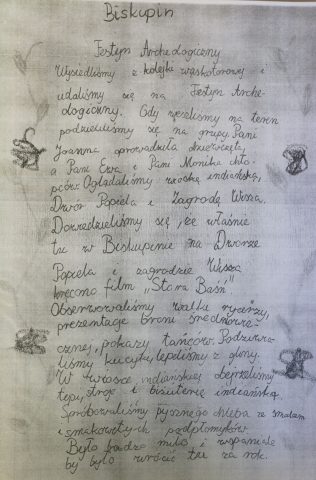 Biskupin
Festyn Archeologiczny
Wysiedliśmy z kolejki wąskotorowej i
udaliśmy się na Festyn Arche-
ologiczny. Gdy weszliśmy na teren
podzieliliśmy się na grupy. Pani
Joanna oprowadziła dziewczęta,
a Pani Ewa i Pani Monika chło-
pców. Oglądaliśmy wioskę indiańską,
Dwór Popiela i Zagrodę Wisza.
Dowiedzieliśmy się, że właśnie
tu w Biskupinie na Dworze
Popiela i zagrodzie Wisza
kręcono film "Stara Baśń"
Obserwowaliśmy walkę rycerzy,
prezentację broni średniowie-
cznej, pokazy tańców. Podziwia-
liśmy kucyki, lepiliśmy z gliny.
W wiosce indiańskiej obejrzeliśmy
tepu, stroje i biżuterię indiańską.
Spróbowaliśmy pysznego chleba ze smalcem
i smakowitych podpłomyków.
Było bardzo miło i wspaniale
by było wrócić tu za rok.